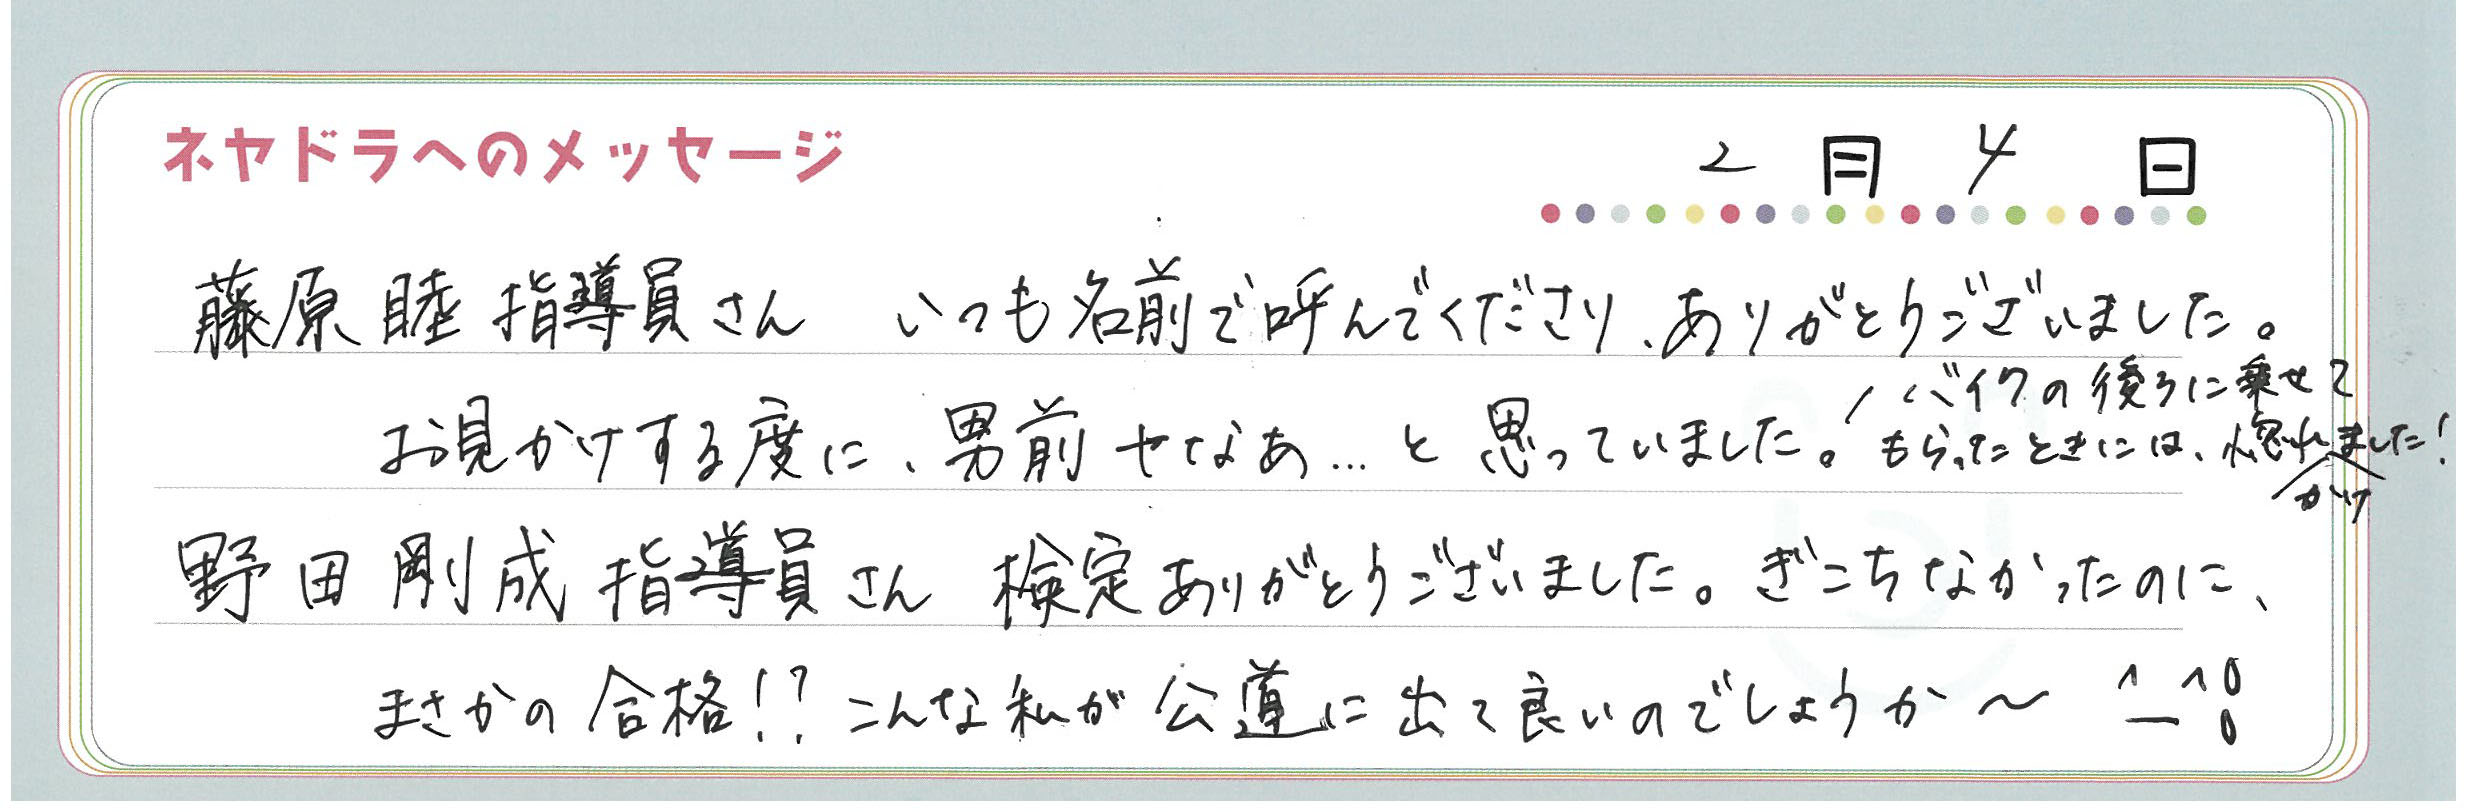 ネヤドラへのメッセージ
2月4日
藤原 睦 指導員さん いつも名前で呼んでくださり、ありがとうございました。
お見かけする度に、男前やなあ…と思っていました。
バイクの後ろに乗せて
もらったときには、惚れかけました!
野田剛成指導員さん 検定ありがとうございました。ぎこちなかったのに、
まさかの合格!? こんな私が公道に出て良いのでしょうか〜 ^_^;